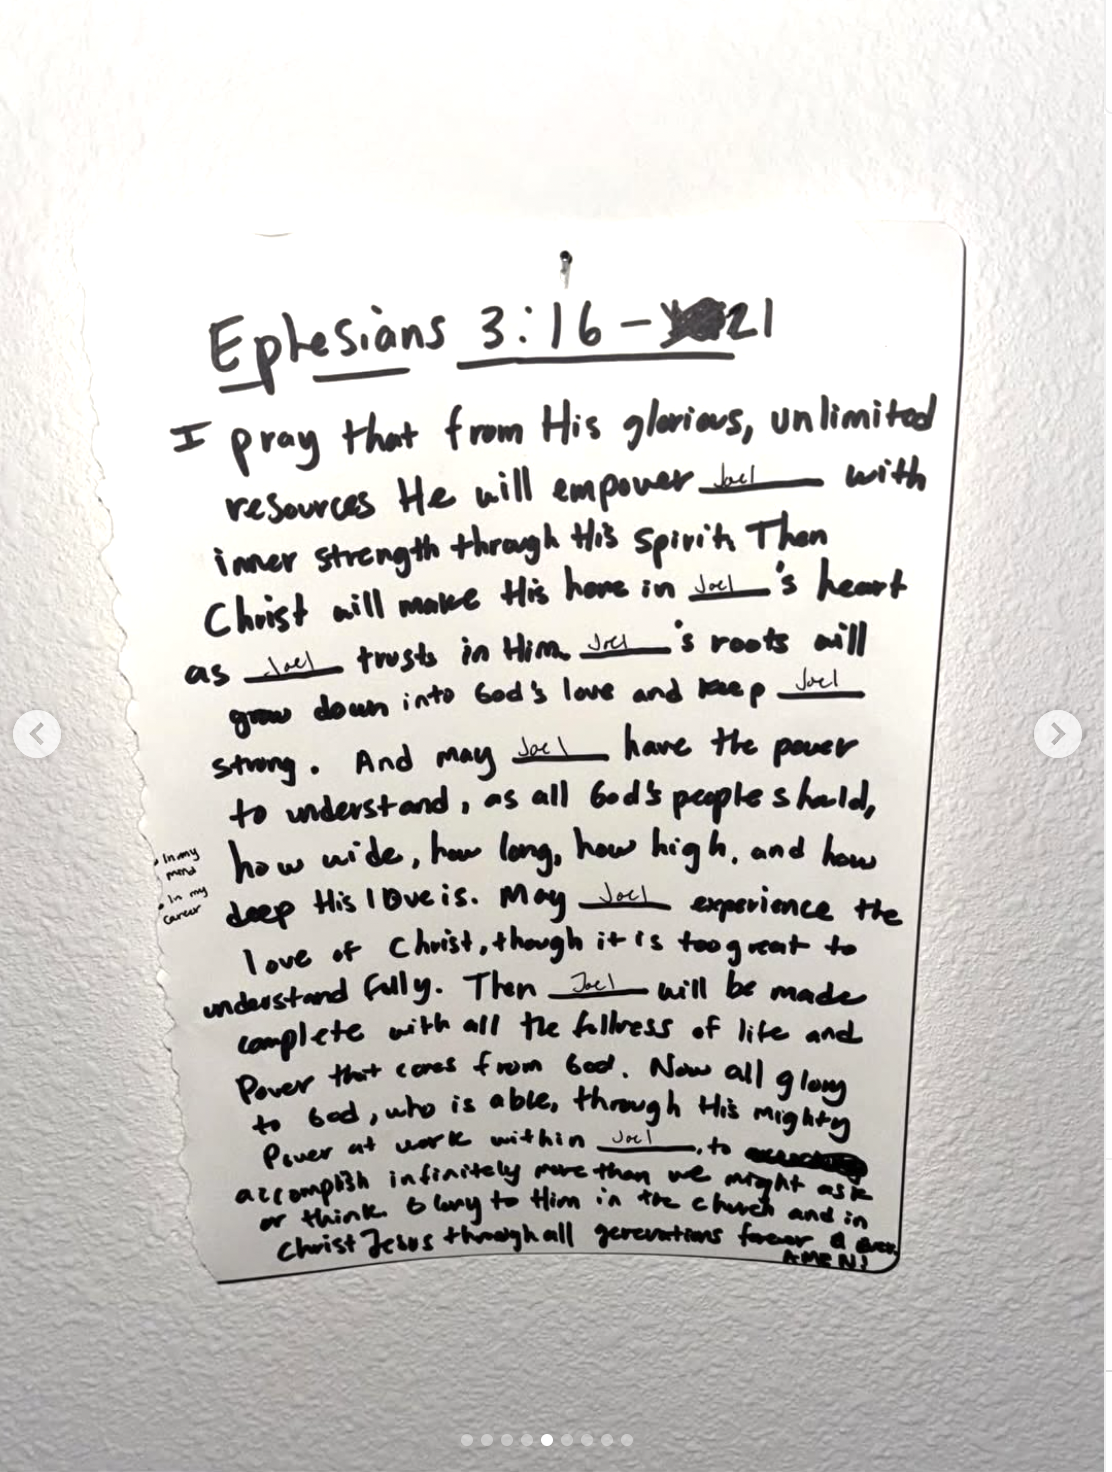 Ephesians 3:16-21
I pray that from His glorious, unlimited
resources He will empower Joel with
inner strength through His Spirit. Then
Christ will make His home in Joel's heart
as Joel trusts in Him. Joel's roots will
grow down into God's love and keep Joel
strong. And may Joel have the power
to understand, as all God's people should,
• In my
mind
how wide, how long, how high, and how
• In my
career
deep His love is. May Joel experience the
love of Christ, though it is too great to
understand fully. Then Joel will be made
complete with all the fullness of life and
Power that comes from God. Now all glory
to God, who is able, through His mighty
Power at work within Joel, to
accomplish infinitely more than we might ask
or think. Glory to Him in the church and in
Christ Jesus through all generations forever & ever.
AMEN!